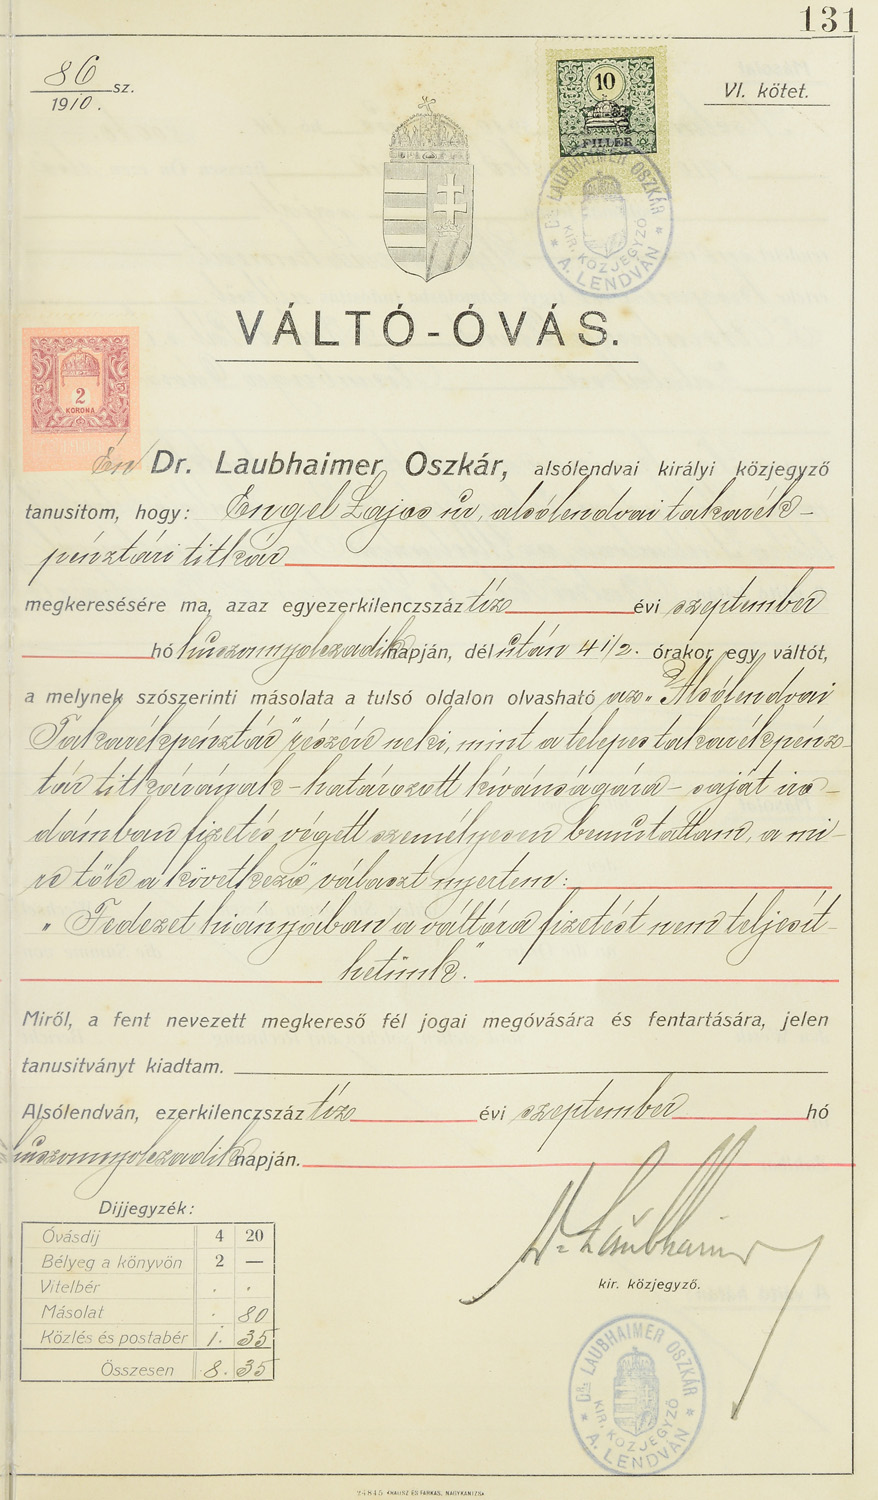 131
86 sz.
1910.
VI. kötet.
10
FILLÉR
Dr. LAUBHAIMER OSZKÁR
KIR. KÖZJEGYZŐ
A. LENDVÁN
VÁLTÓ-ÓVÁS.
2
KORONA
Én Dr. Laubhaimer Oszkár, alsólendvai királyi közjegyző
tanusitom, hogy: Engel Lajos úr, alsólendvai takarék-
pénztári titkár
megkeresésére ma, azaz egyezerkilenczszáz tíz évi szeptember
hó huszonnyolczadik napján, dél után 4 1/2. órakor egy váltót,
a melynek szószerinti másolata a tulsó oldalon olvasható az „Alsólendvai
Takarékpénztár" részére neki, mint a telepes takarékpénz-
tár titkárának - határozott kívánságára - saját iro-
dámban fizetés végett személyesen bemutattam, a mi-
re tőle a következő választ nyertem:
„Fedezet hiányában a váltóra fizetést nem teljesít-
hetünk."
Miről, a fent nevezett megkereső fél jogai megóvására és fentartására, jelen
tanusitványt kiadtam.
Alsólendván, ezerkilenczszáz tíz évi szeptember hó
huszonnyolczadik napján.
Dijjegyzék:
Óvásdij 4 20
Bélyeg a könyvön 2 —
Vitelbér . .
Másolat . 80
Közlés és postabér 1. 35
Összesen 8. 35
Dr. Laubhaimer
kir. közjegyző.
Dr. LAUBHAIMER OSZKÁR
KIR. KÖZJEGYZŐ
A. LENDVÁN
24845 KRAUSZ ÉS FARKAS, NAGYKANIZSA